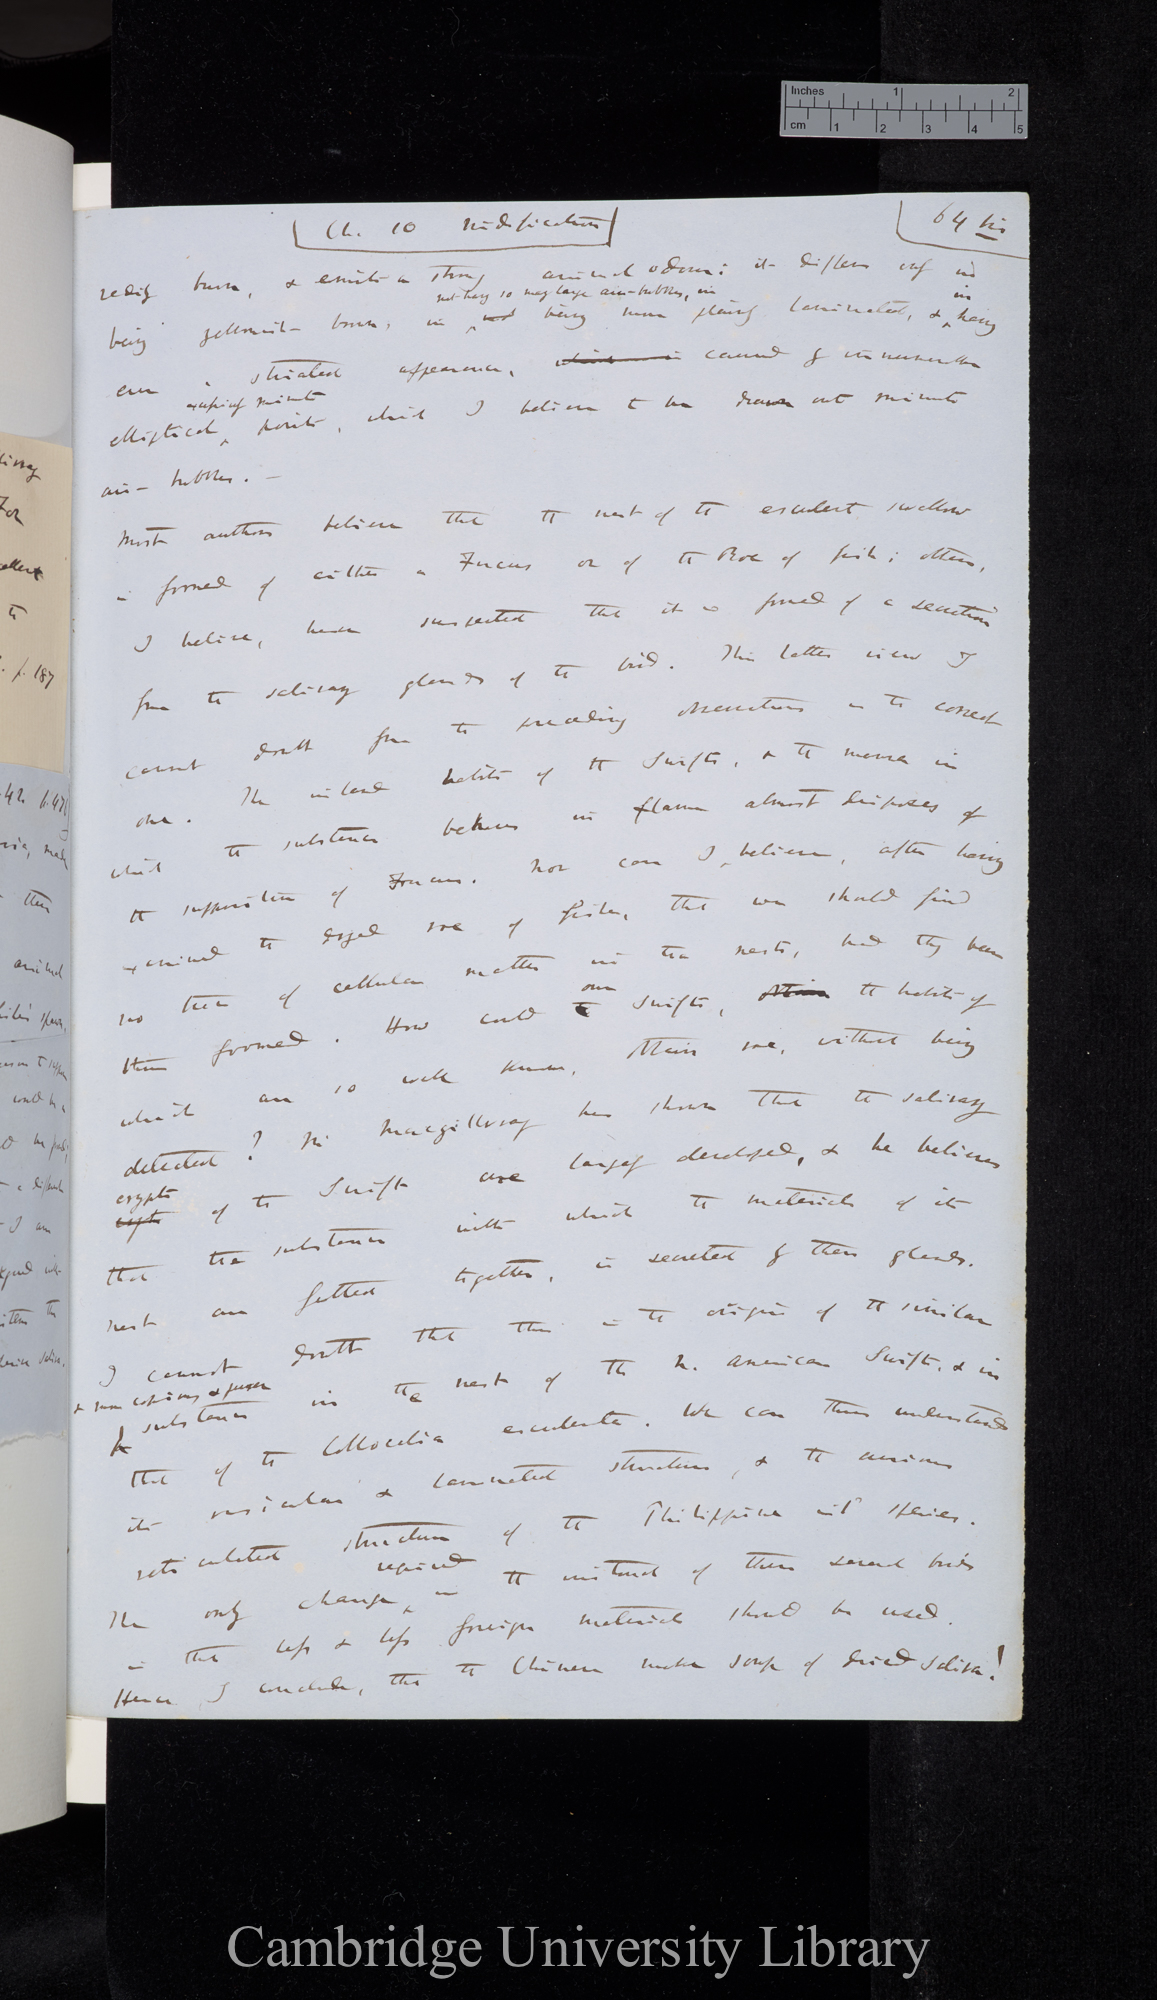 Inches 1 2
cm 1 2 3 4 5
Ch. 10 Nidification
64 bis
redily burn, & emits a strong animal odour: it differs only in
not having so many large air-bubbles, in
in
being yellowish-brown, in not being more plainly laminated, & having
even a striated appearance, which is caused by innumerable
excessively minute
elliptical points, which I believe to be drawn out minute
air-bubbles. —
Most authors believe that the nest of the esculent swallow
is formed of either a Fucus or of the Roe of fish; others,
I believe, have suspected that it is formed of a secretion
from the salivary glands of the bird. This latter view I
cannot doubt from the preceding observations is the correct
one. The inland habits of the Swifts, & the manner in
which the substance behaves in flame almost disposes of
the supposition of Fucus. Nor can I believe, after having
examined the dryed roe of fishes, that we should find
no trace of cellular matter in the nests, had they been
our
thus formed. How could the Swifts, obtain the habits of
which are so well known, obtain roe, without being
detected? Mr Macgillivray has shown that the salivary
crypts
crypts of the Swift are largely developed, & he believes
that the substance with which the materials of its
nest are felted together, is secreted by these glands.
I cannot doubt that this is the origin of the similar
& more copious & purer
substance in the nest of the N. American Swift, & in
that of the Collocalia esculenta. We can thus understand
its vesicular & laminated structure, & the curious
reticulated structure of the Philippine isld species.
required
The only change, in the instinct of these several birds
is that less & less foreign materials should be used.
Hence I conclude, that the Chinese make soup of dried saliva!
p. 187
animal
Cambridge University Library